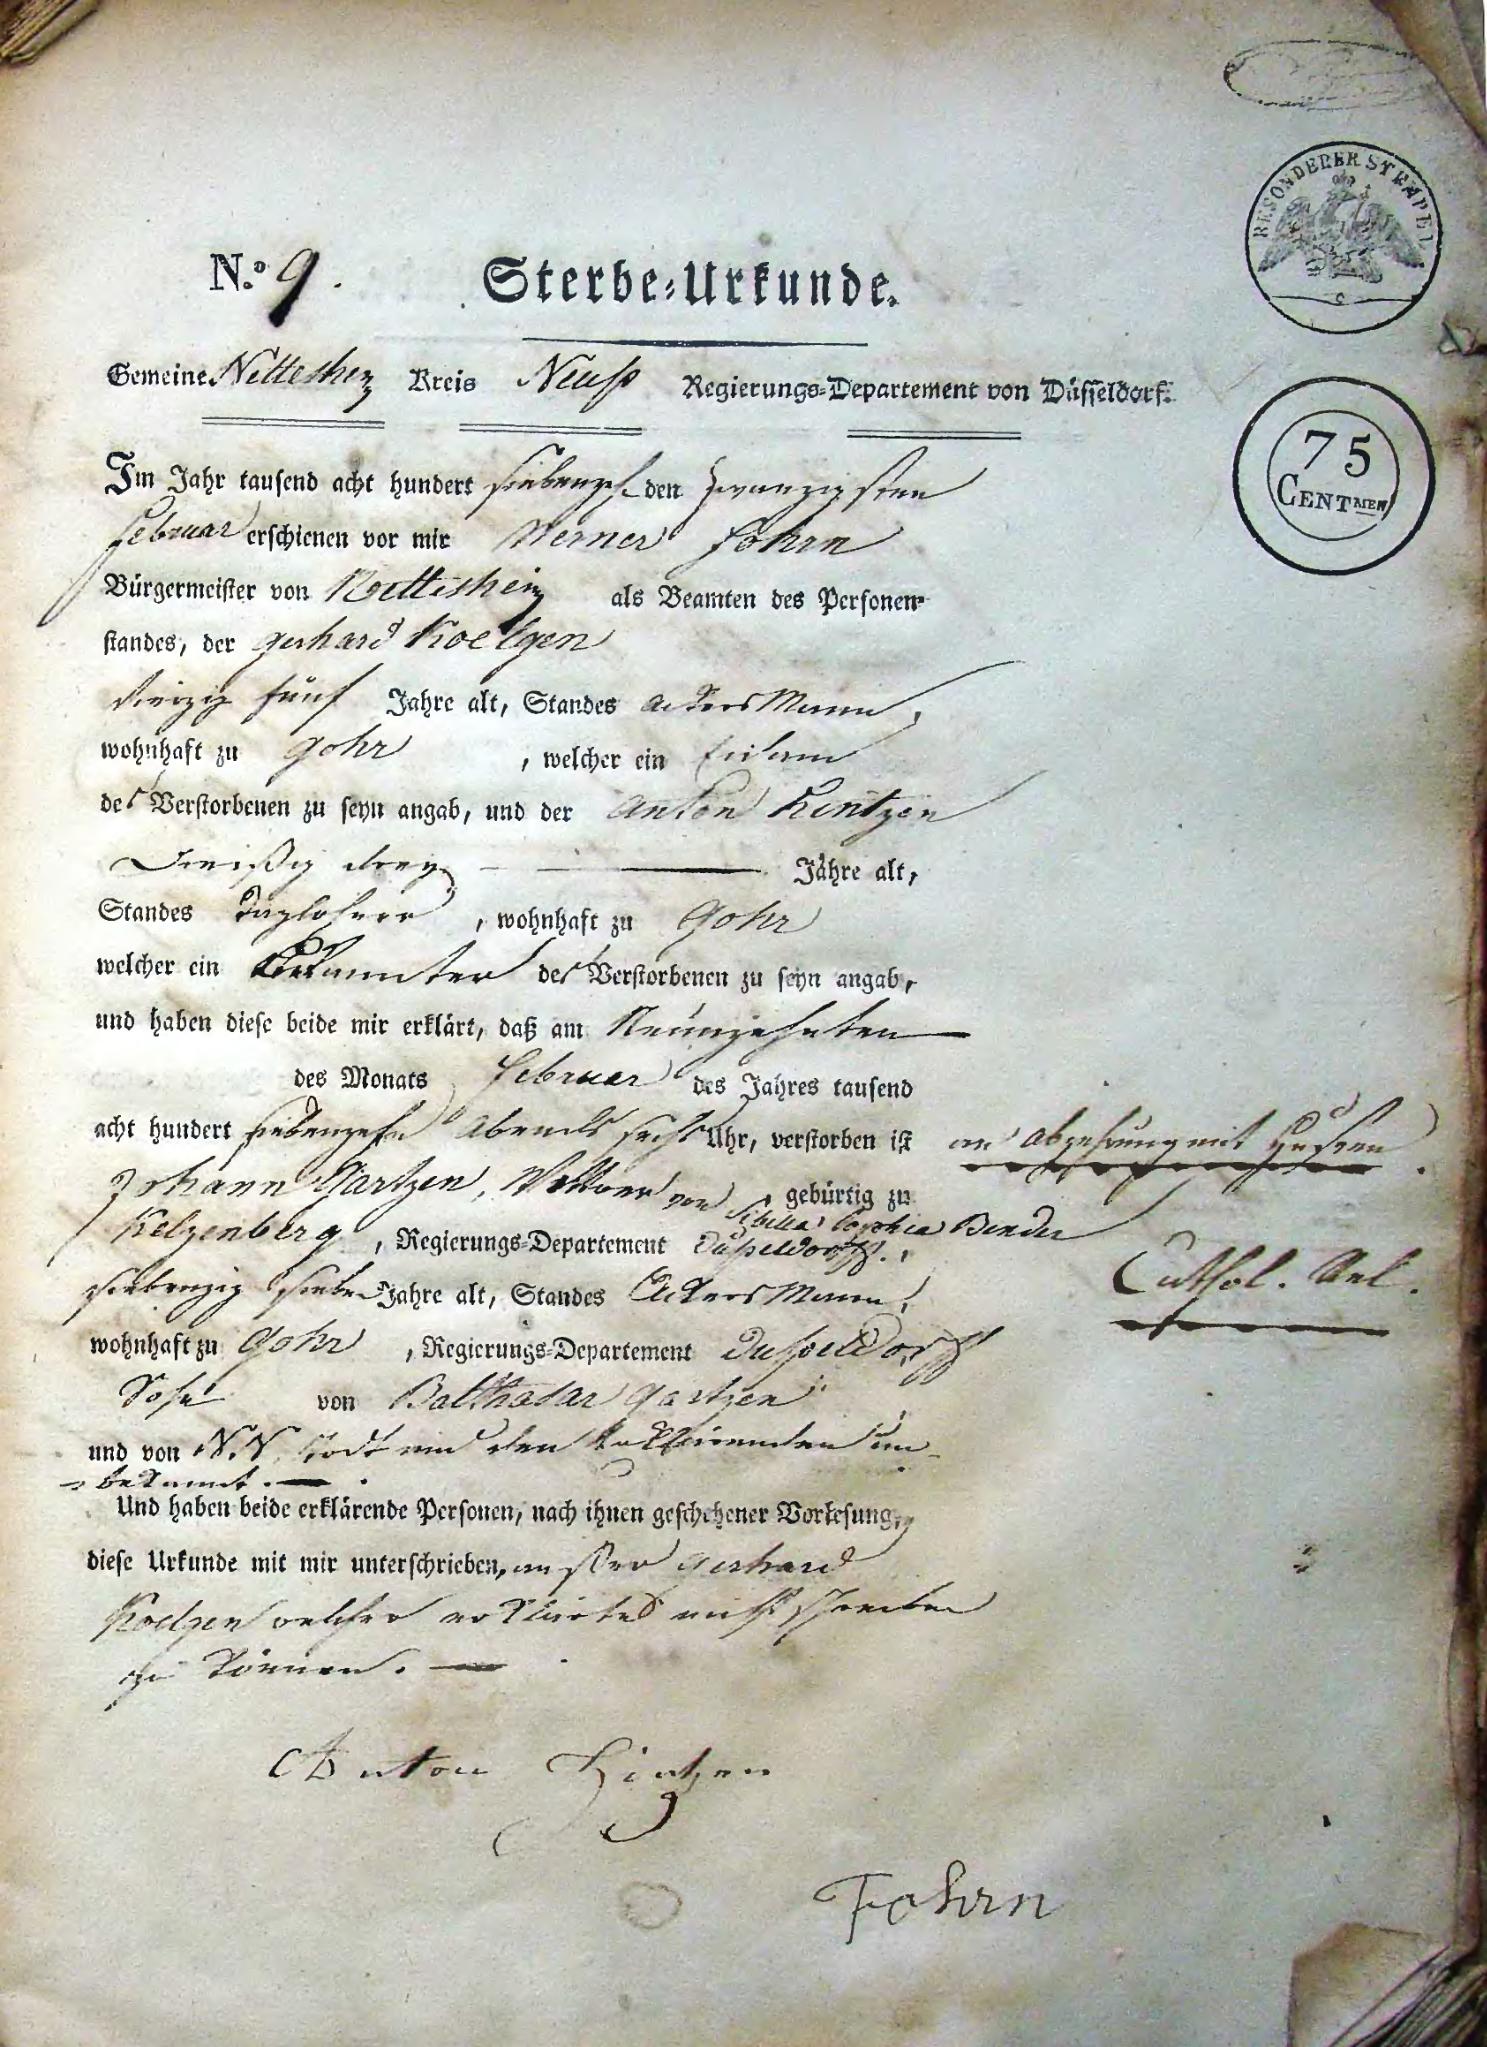 BESONDERER STEMPEL
N.º 9.
Sterbe-Urkunde.
Gemeine Nettesheim Kreis Neuss Regierungs-Departement von Düsseldorf.
75
CENTMEN
Im Jahr tausend acht hundert siebenzehn den zwanzigsten
Februar erschienen vor mir Werner Fohrn
Bürgermeister von Nettesheim als Beamten des Personen-
standes, der Gerhard Koelgen
vierzig fünf Jahre alt, Standes Ackersmann,
wohnhaft zu Gohr, welcher ein Eidam
des Verstorbenen zu seyn angab, und der Anton Hintzen
Dreißig drey Jahre alt,
Standes Taglöhner, wohnhaft zu Gohr
welcher ein Bekannter des Verstorbenen zu seyn angab,
und haben diese beide mir erklärt, daß am Neunzehnten
des Monats Februar des Jahres tausend
acht hundert siebenzehn Abends sechs Uhr, verstorben ist an Abzehrung mit Husten.
Johann Gartzen, Wittwer von Sibilla Sophia Bender gebürtig zu
Kelzenberg, Regierungs-Departement Düsseldorff,
siebenzig sieben Jahre alt, Standes Ackersmann,
Cathol. Rel.
wohnhaft zu Gohr, Regierungs-Departement Dusseldorff
Sohn von Balthasar Gartzen
und von N.N. den un-
bekannt.
Und haben beide erklärende Personen, nach ihnen geschehener Vorlesung,
diese Urkunde mit mir unterschrieben, ausser Gerhard
Koelgen welcher erklärte nicht schreiben
zu können.
Anton Hintzen
Fohrn